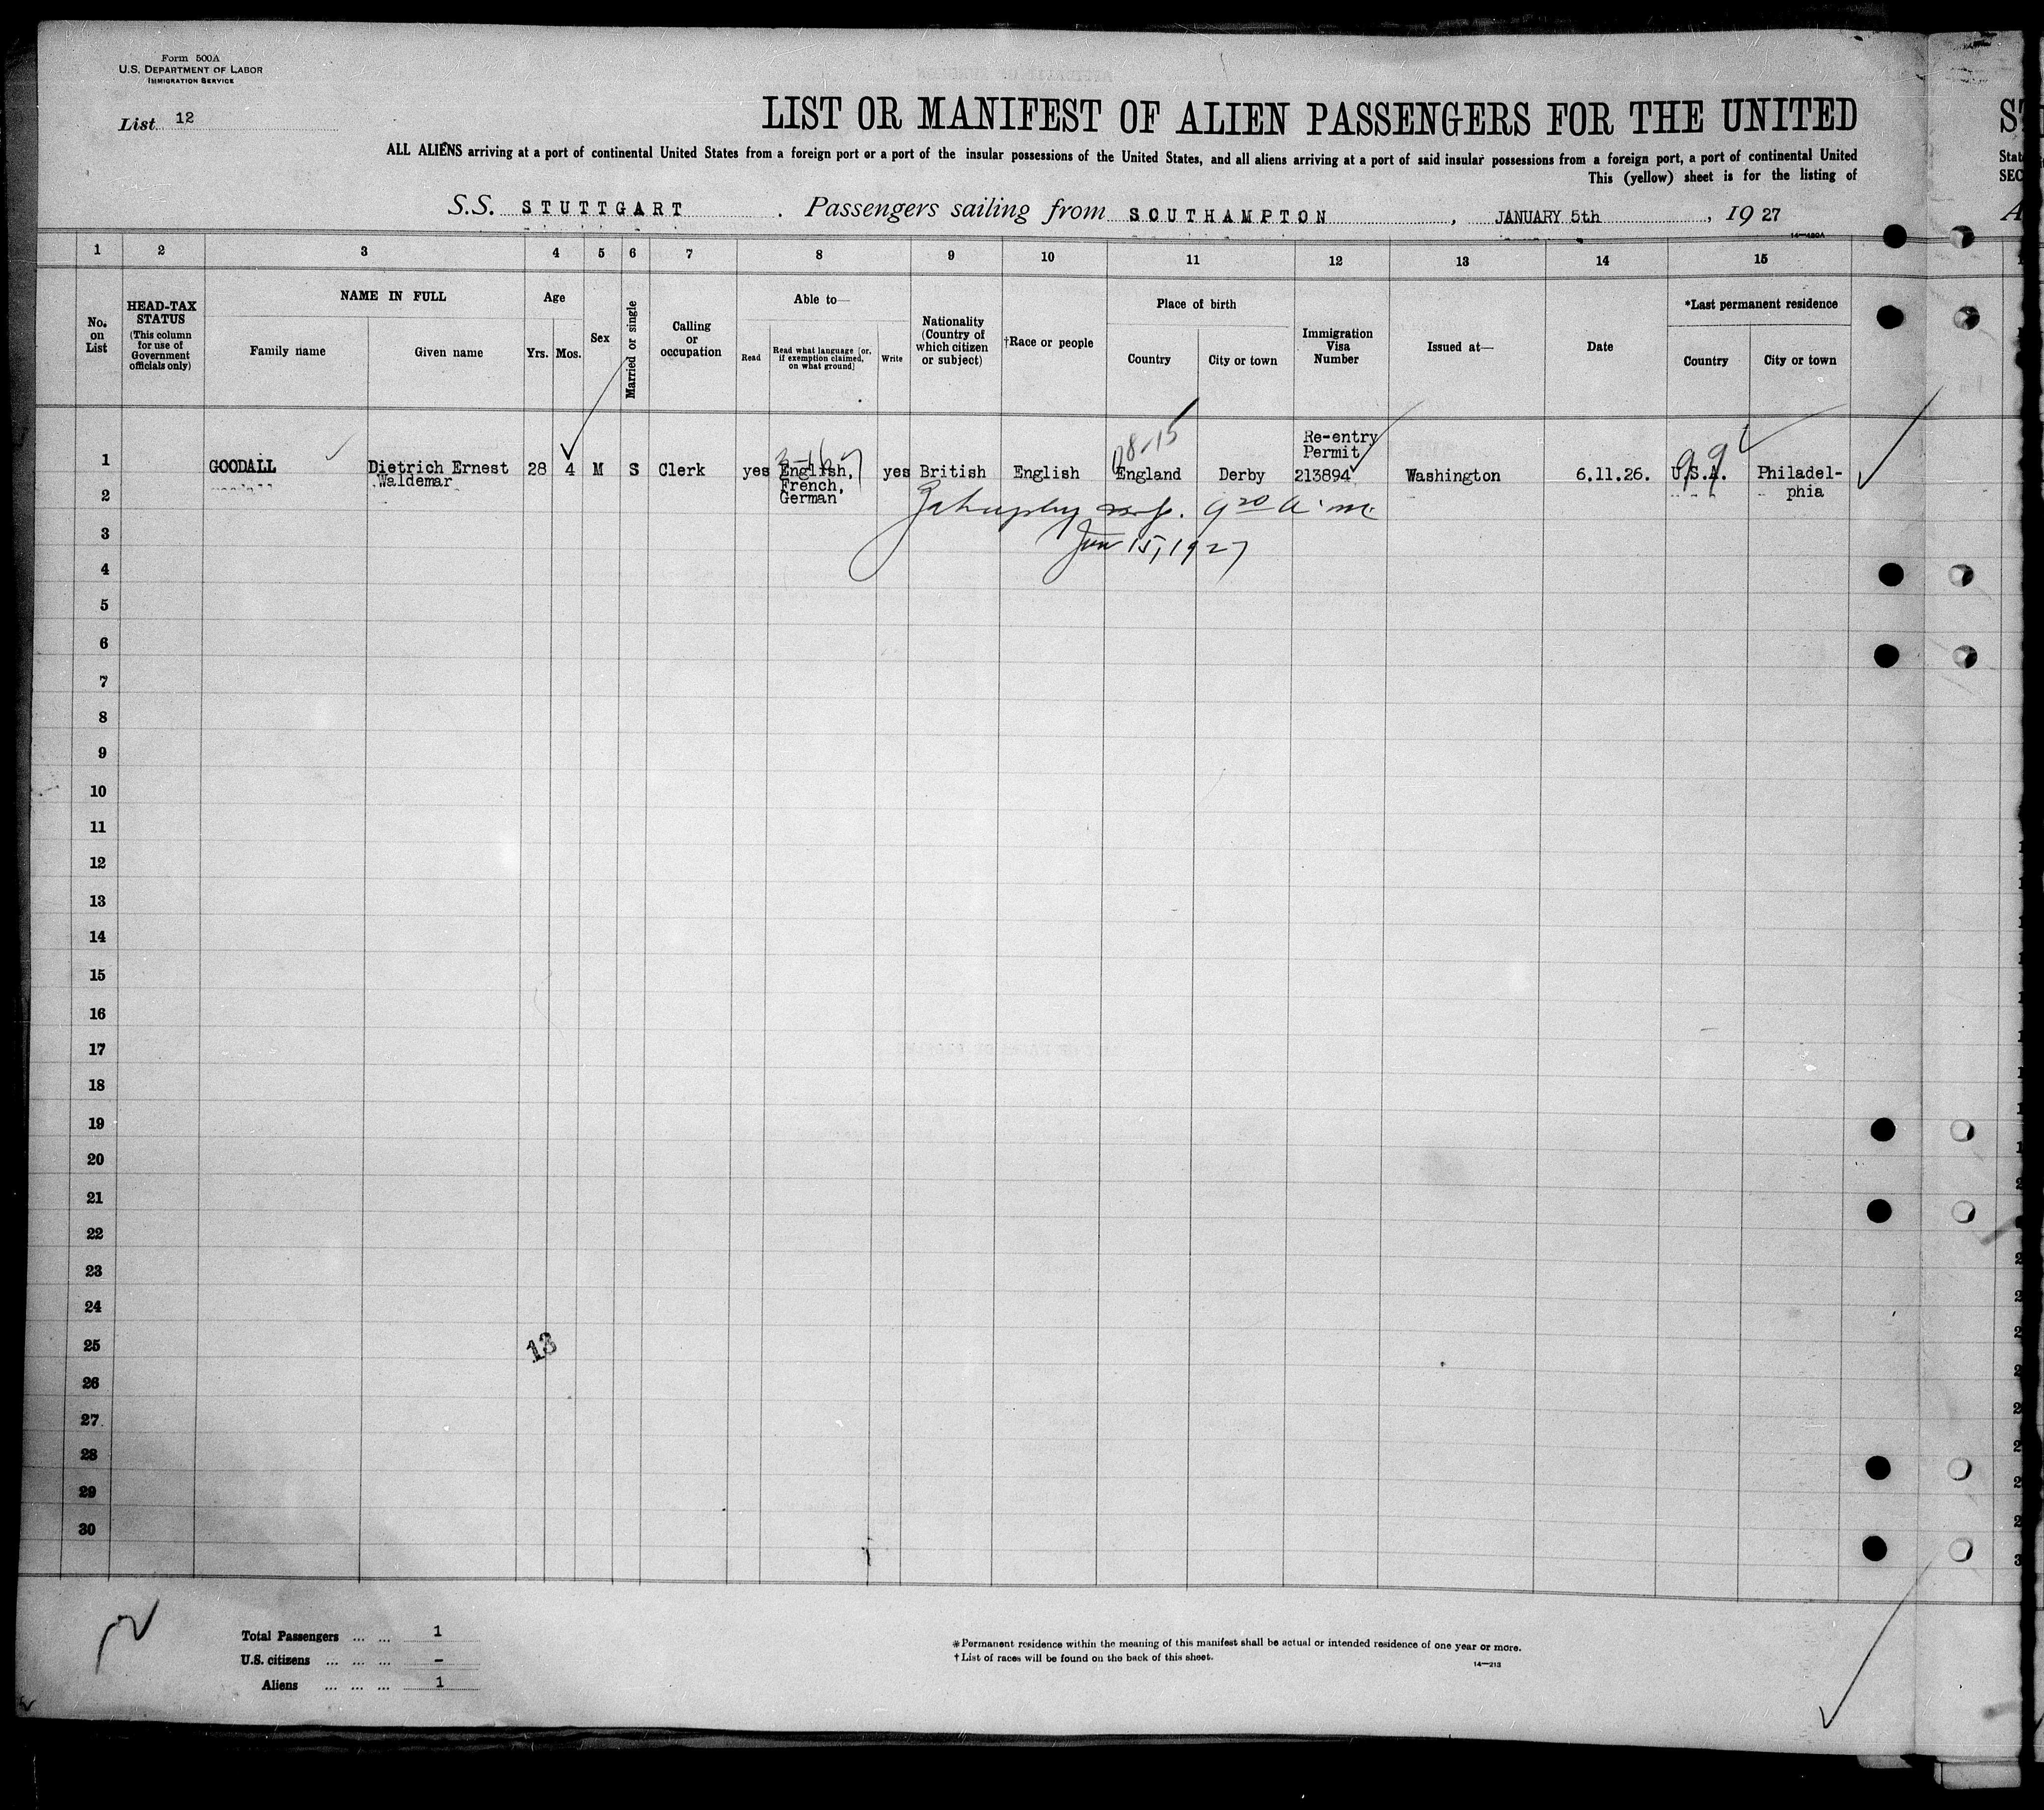 Form 500A
U.S. DEPARTMENT OF LABOR
IMMIGRATION SERVICE
List 12
LIST OR MANIFEST OF ALIEN PASSENGERS FOR THE UNITED
ALL ALIENS arriving at a port of continental United States from a foreign port or a port of the insular possessions of the United States, and all aliens arriving at a port of said insular possessions from a foreign port, a port of continental United
This (yellow) sheet is for the listing of
S.S. STUTTGART . Passengers sailing from SOUTHAMPTON , JANUARY 5th , 19 27
14—480A
1 2 3 4 5 6 7 8 9 10 11 12 13 14 15
No. on List
HEAD-TAX STATUS (This column for use of Government officials only)
NAME IN FULL
Family name
Given name
Age
Yrs. Mos.
Sex
Married or single
Calling or occupation
Able to—
Read
Read what language [or, if exemption claimed, on what ground]
Write
Nationality (Country of which citizen or subject)
†Race or people
Place of birth
Country
City or town
Immigration Visa Number
Issued at—
Date
*Last permanent residence
Country
City or town
1 GOODALL Dietrich Ernest Waldemar 28 4 M S Clerk yes English, French, German yes British English England Derby Re-entry Permit 213894 Washington 6.11.26. U.S.A. Philadel-phia
9 20 a.m.
Jan 15, 1927
99
2
3
4
5
6
7
8
9
10
11
12
13
14
15
16
17
18
19
20
21
22
23
24
25
26
27
28
29
30
13
Total Passengers ... ... 1
U.S. citizens ... ... ... –
Aliens ... ... ... 1
*Permanent residence within the meaning of this manifest shall be actual or intended residence of one year or more.
†List of races will be found on the back of this sheet.
14—213
ST
Stat
SEC
A